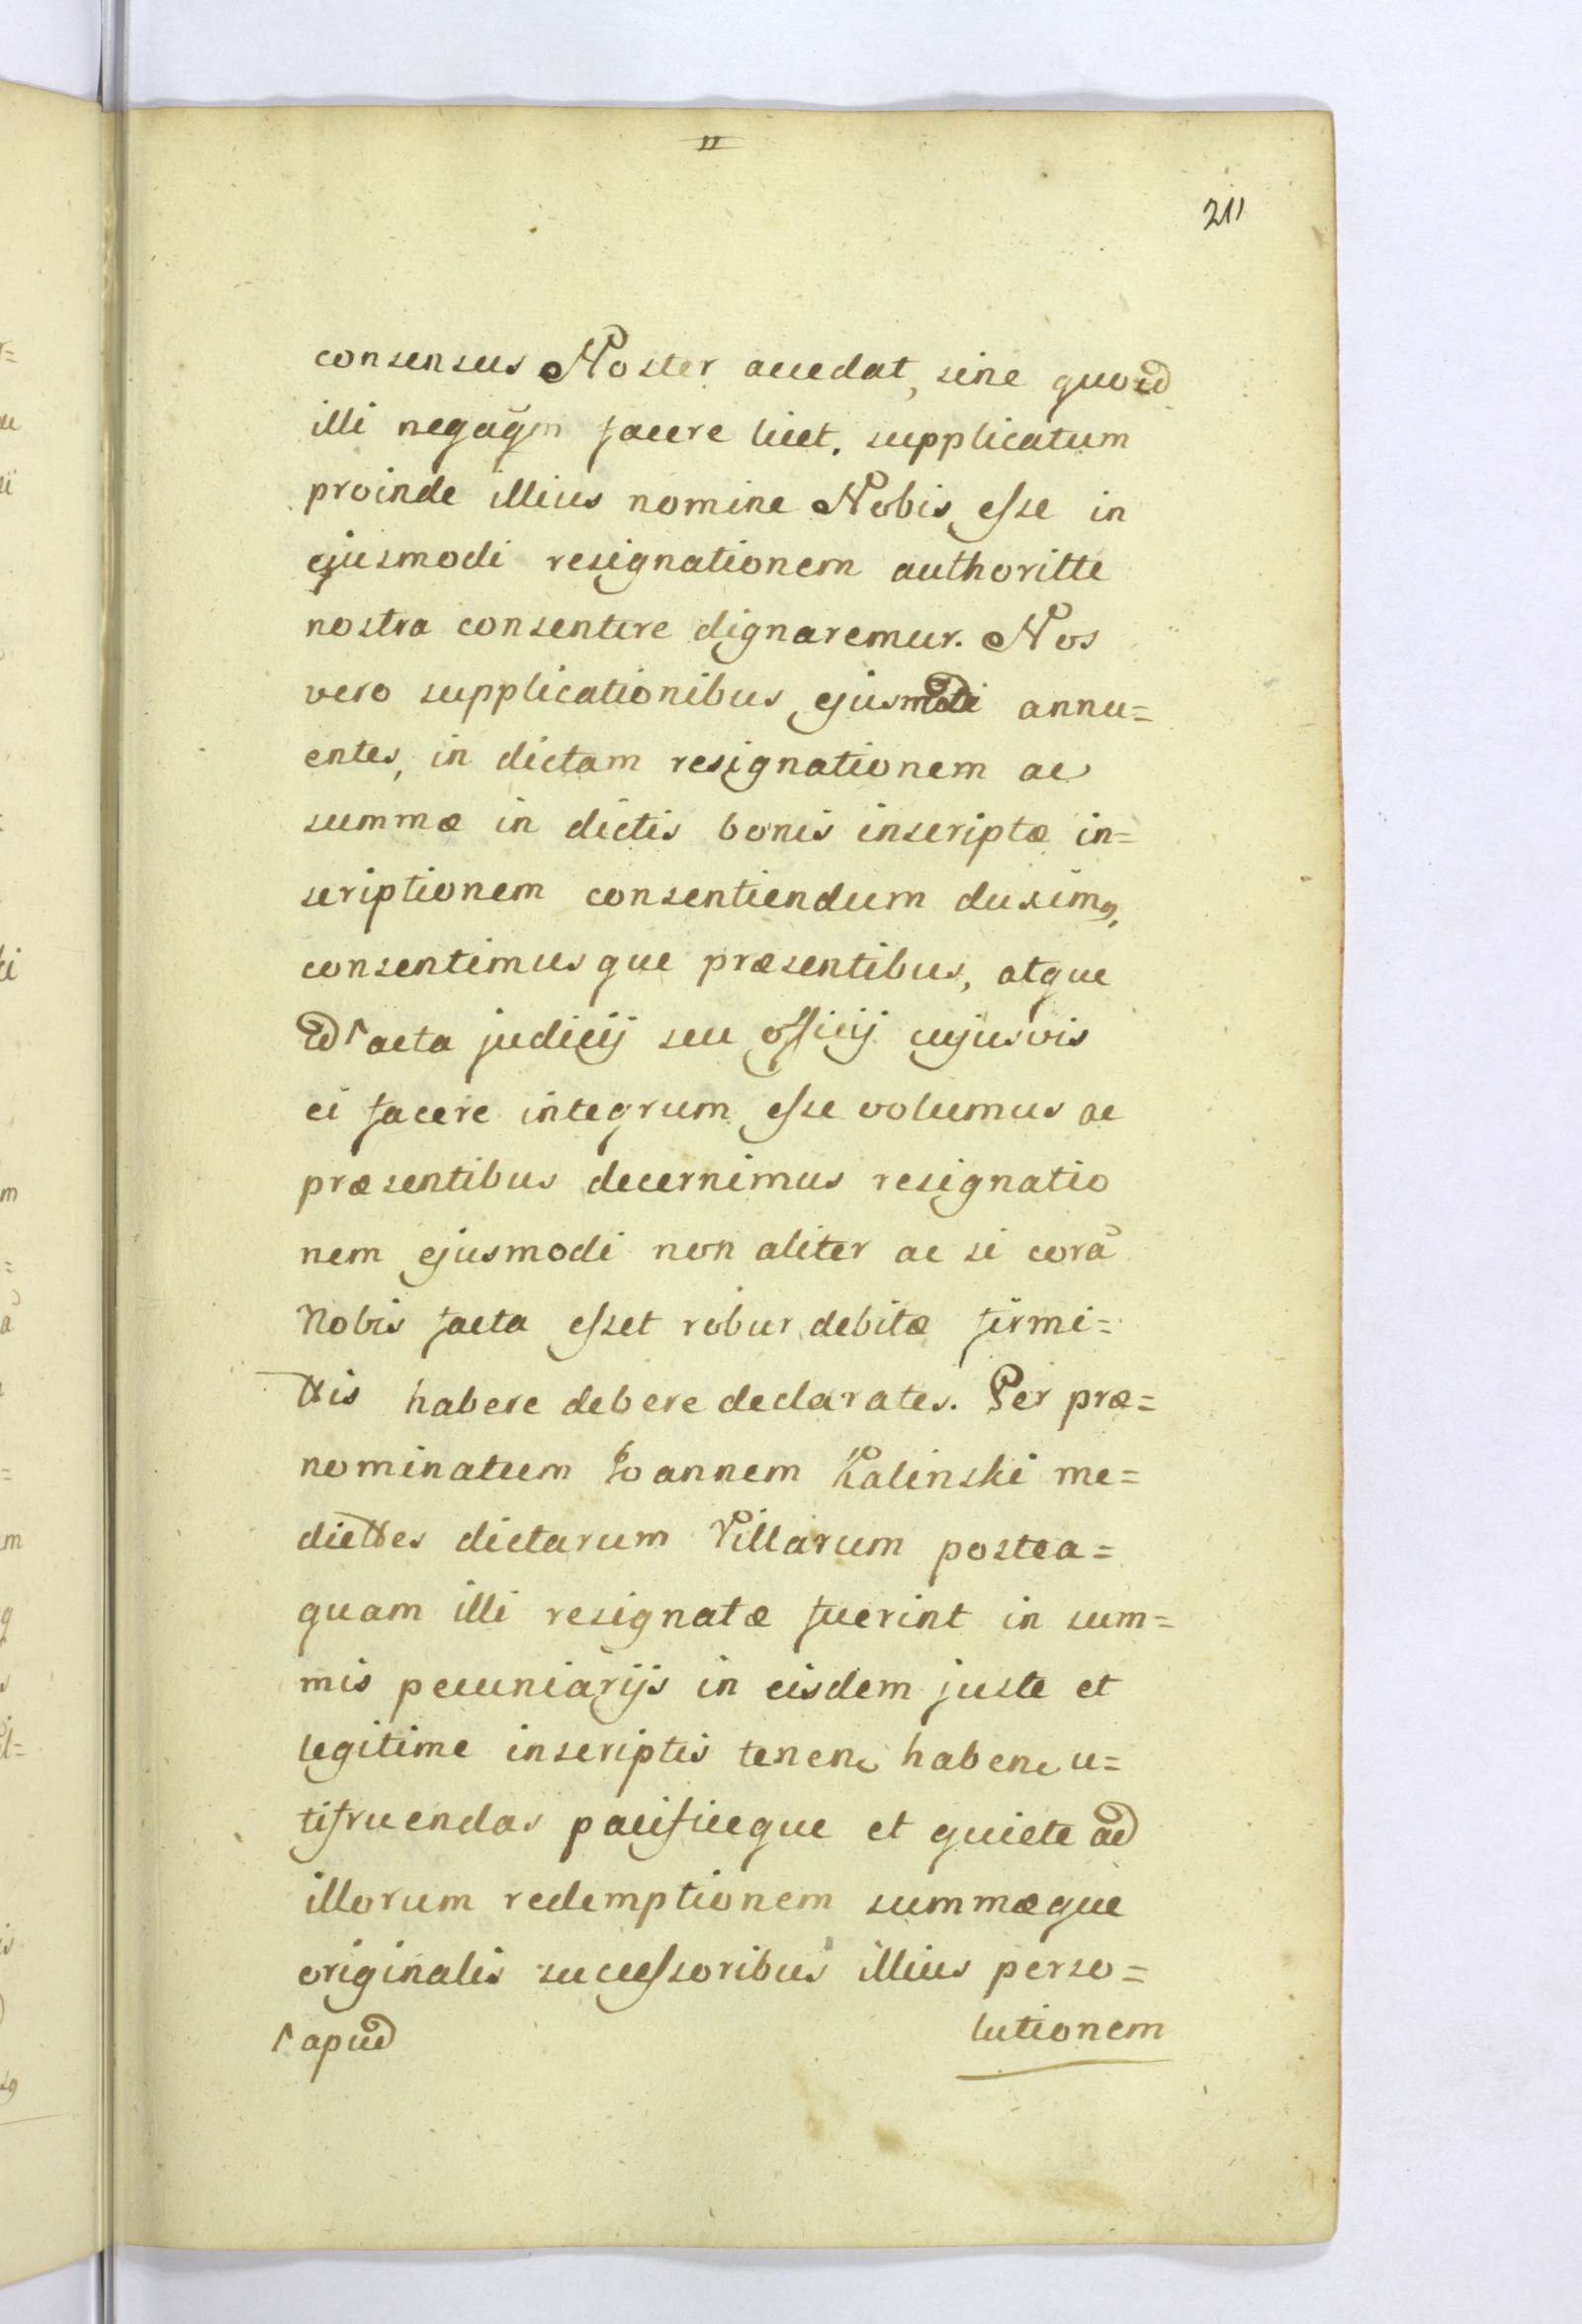 II
211
consensus Noster accedat, sine quo id
illi negaq̃m facere licet. supplicatum
proinde illius nomine Nobis esse in
ejusmodi resignationem authoritte
nostra consentire dignaremur. Nos
vero supplicationibus ejusmodi annu=
entes, in dictam resignationem ac
summæ in dictis bonis inscriptæ in=
scriptionem consentiendum duximꝰ,
consentimusque præsentibus, atque
id ꜛ acta judicij seu officij cujusvis
ei facere integrum esse volumus ac
præsentibus decernimus resignatio
nem ejusmodi non aliter ac si corã
Nobis facta esset robur debitæ firmi=
ttis habere debere declarates. Per præ=
nominatum Joannem Kalinski me=
diettes dictarum Villarum postea=
quam illi resignatæ fuerint in sum=
mis pecuniarijs in eisdem juste et
legitime inscriptis tenen. haben. u=
tifruendas pacificeque et quiete ad
illorum redemptionem summæque
originalis successoribus illius perso=
lutionem
ꜛ apud